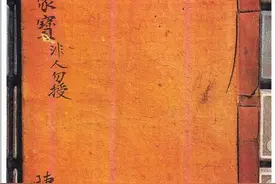 家寶
非人勿授
陳